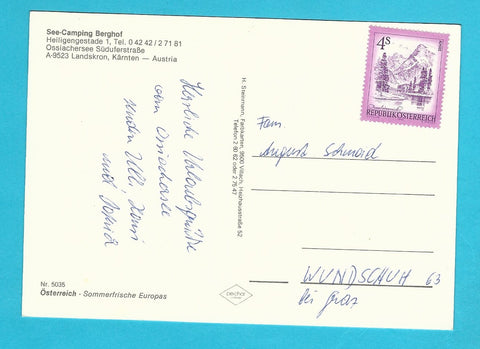 See-Camping Berghof
Heiligengestade 1, Tel. 0 42 42 / 2 71 81
Ossiachersee Süduferstraße
A-9523 Landskron, Kärnten — Austria
Herzliche Urlaubsgrüße
vom Ossiachersee
senden Ulli, Hansi
und
Nr. 5035
Österreich - Sommerfrische Europas
H. Steinmann, Farbkarten, 9500 Villach, Heizhausstraße 52
Telefon 2 60 62 oder 2 75 47
4s
REPUBLIK ÖSTERREICH
Fam
Auguste Schmied
WUNDSCHUH 63
bei Graz